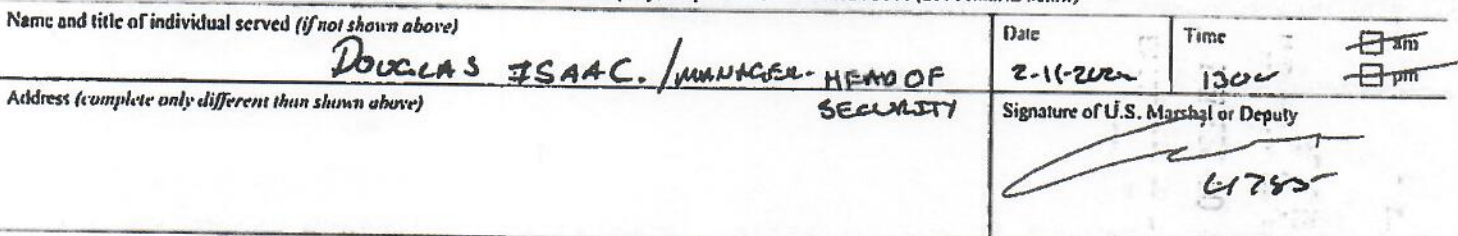 Name and title of individual served (if not shown above)
DOUGLAS ISAAC. / MANAGER- HEAD OF
SECURITY
Date
Time
am
pm
1300
Address (complete only different than shown above)
Signature of U.S. Marshal or Deputy